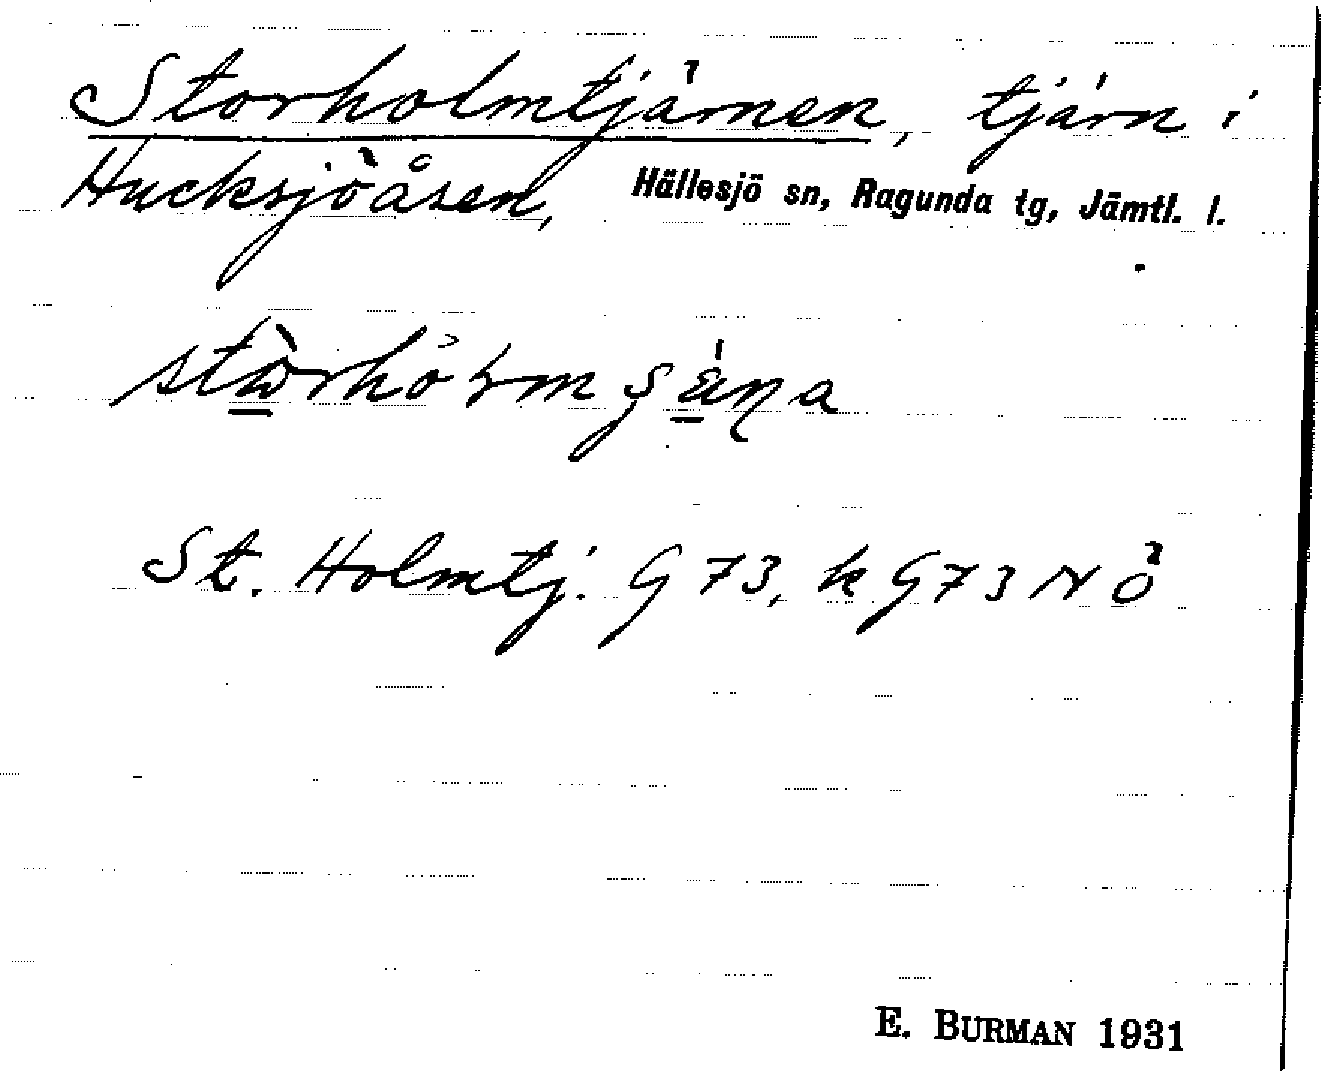 Storholmtjärnen, tjärn i
Hucksjöåsen, Hällesjö sn, Ragunda tg, Jämtl. l.
St. Holmtj. G 73, k G 73 N Ö
E. BURMAN 1931